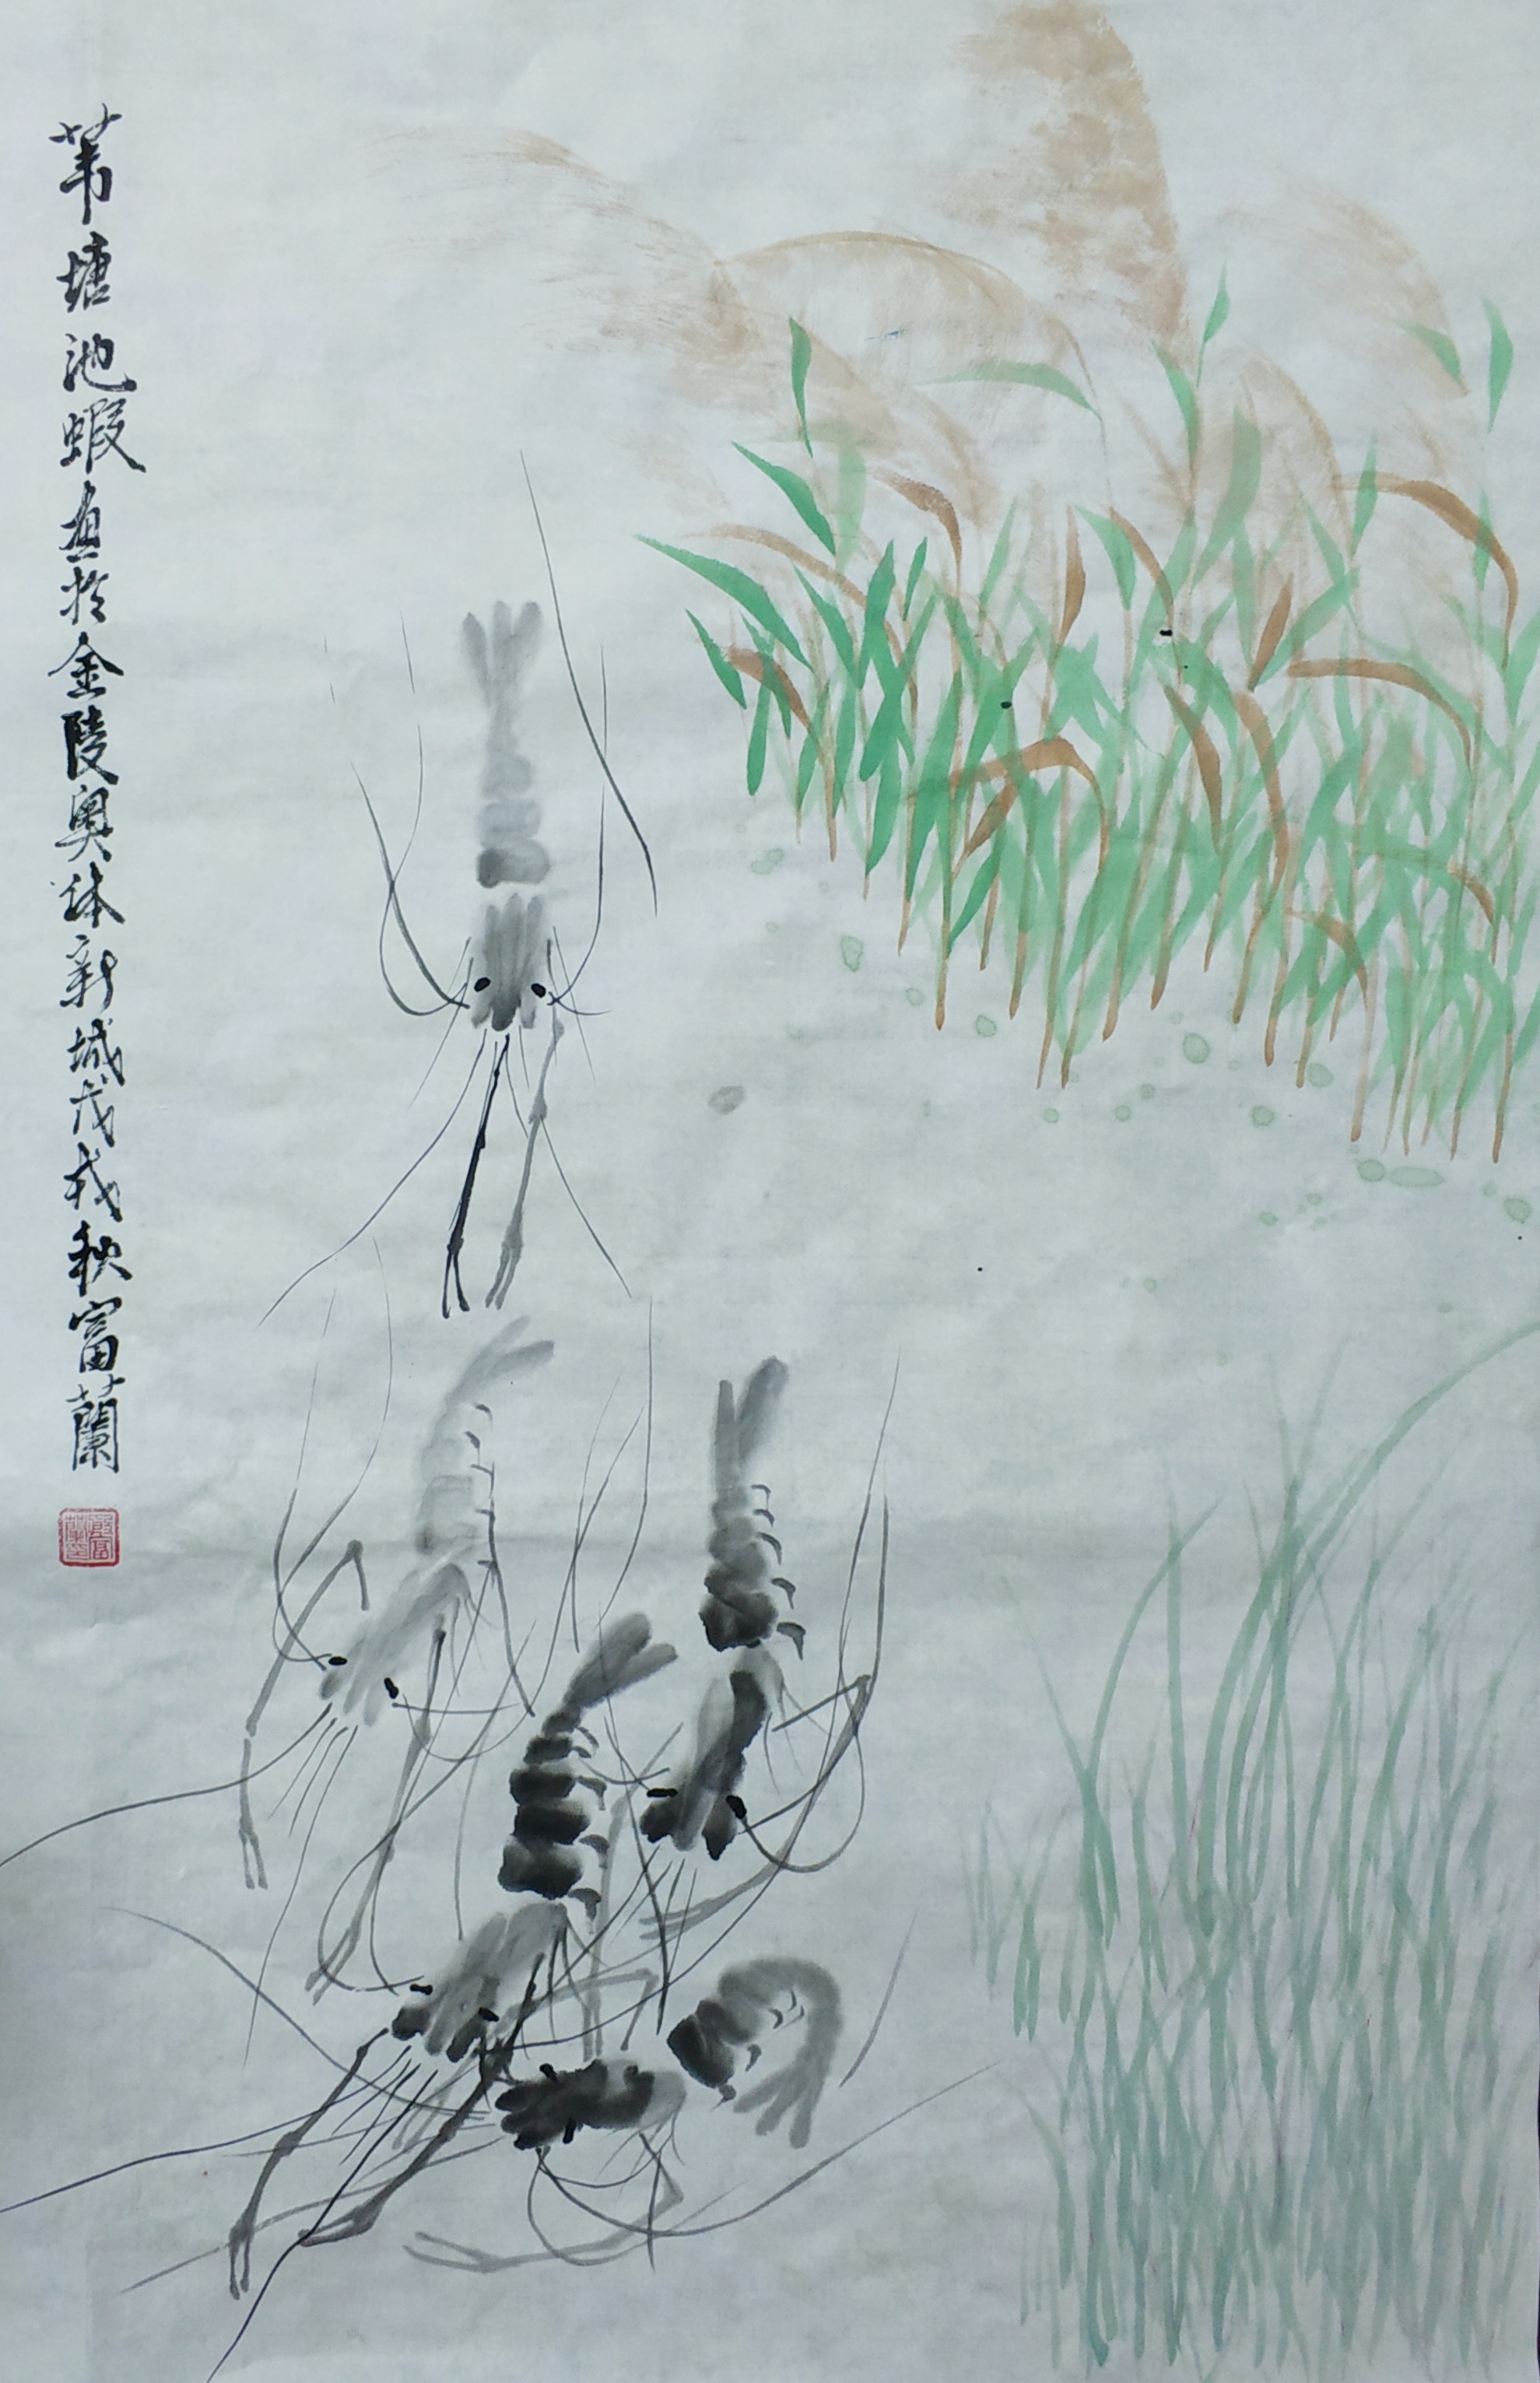 苇塘池蝦画於金陵奥体新城戊戌秋富蘭